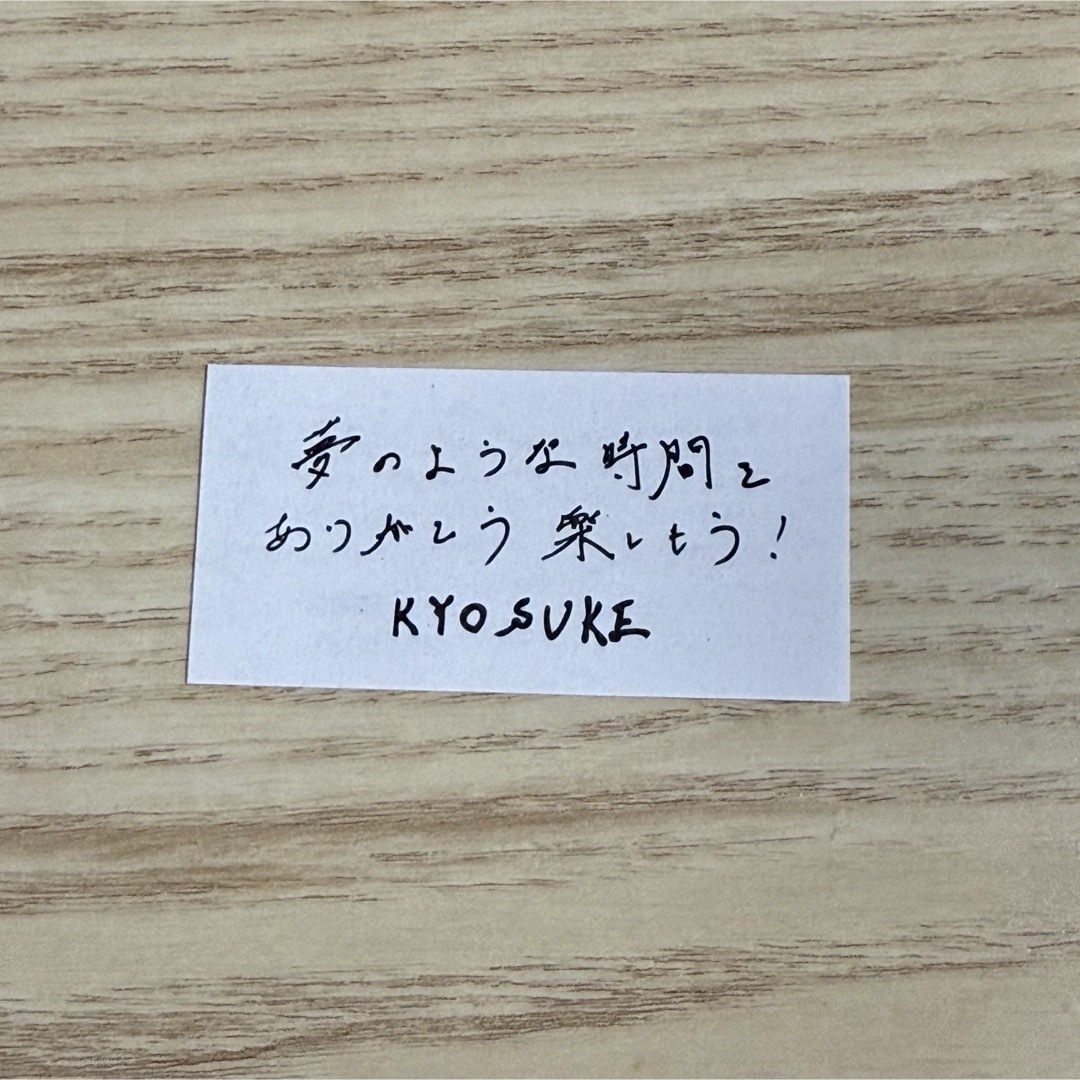 夢のような時間を
ありがとう 楽しもう!
KYOSUKE